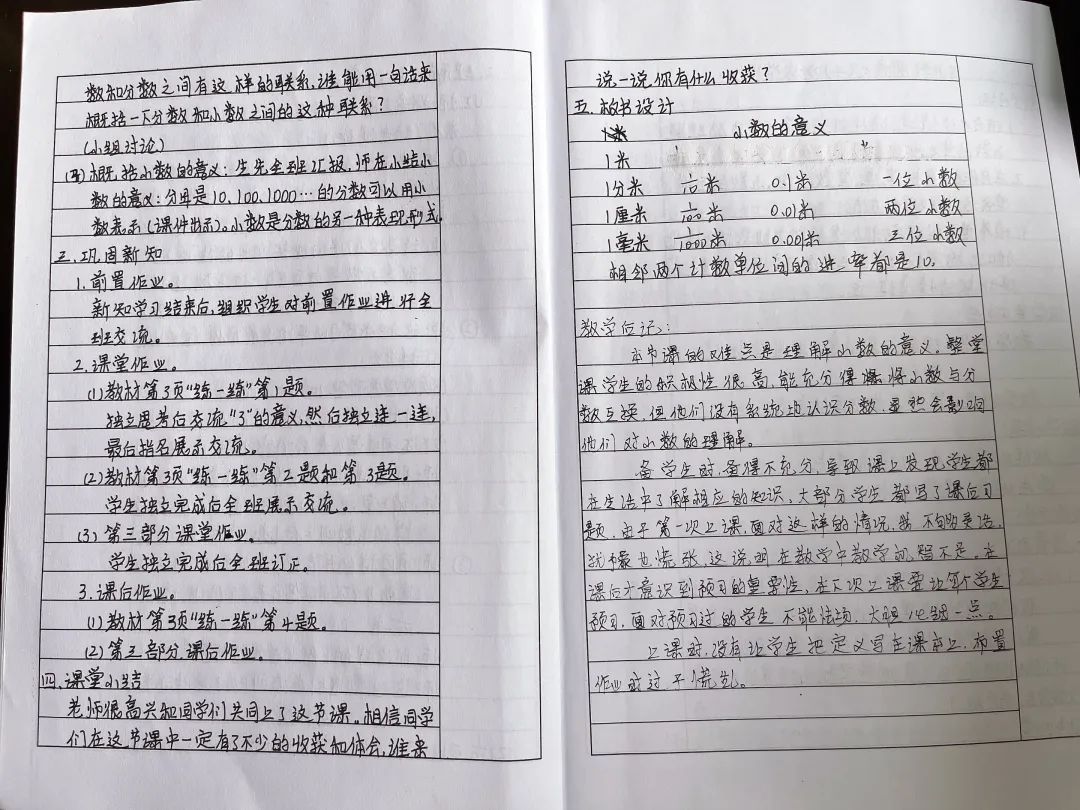 数和分数之间有这样的联系,谁能用一句话来
概括一下分数和小数之间的这种联系?
(小组讨论)
概括小数的意义:生先全班汇报,师在小结小
数的意义:分母是10、100、1000…的分数可以用小
数表示(课件出示)。小数是分数的另一种表现形式
三、巩固新知
1.前置作业。
新知学习结束后,组织学生对前置作业进行全
班交流。
2.课堂作业。
(1)教材第3页“练一练”第1题。
独立思考后交流“3”的意义,然后独立连一连,
最后指名展示交流。
(2)教材第3页“练一练”第2题和第3题。
学生独立完成后全班展示交流。
(3)第三部分课堂作业。
学生独立完成后全班订正。
3.课后作业。
(1)教材第3页“练一练”第4题。
(2)第三部分课后作业。
四、课堂小结
老师很高兴和同学们共同上了这节课。相信同学
们在这节课中一定有了不少的收获和体会,谁来
说一说你有什么收获?
五、板书设计
小数的意义
1米
1分米 1/10米 0.1米 一位小数
1厘米 1/100米 0.01米 两位小数
1毫米 1/1000米 0.001米 三位小数
相邻两个计数单位间的进率都是10。
教学后记:
本节课的难点是理解小数的意义。整堂
课学生的积极性很高,能充分得将小数与分
数互换,但他们没有系统地认识分数,虽然会影响
他们对小数的理解。
备学生时,备得不充分,导致课上发现,学生都
在生活中了解相应的知识,大部分学生都写了课后习
题,由于第一次上课,面对这样的情况,我不够灵活,
也慌张,这说明在教学中教学机智不足。在
课后才意识到预习的重要性,在下次上课要让每个学生
预习,面对预习过的学生不能怯场,大胆 一点。
上课时,没有让学生把定义写在课本上,布置
作业时过于慌乱。